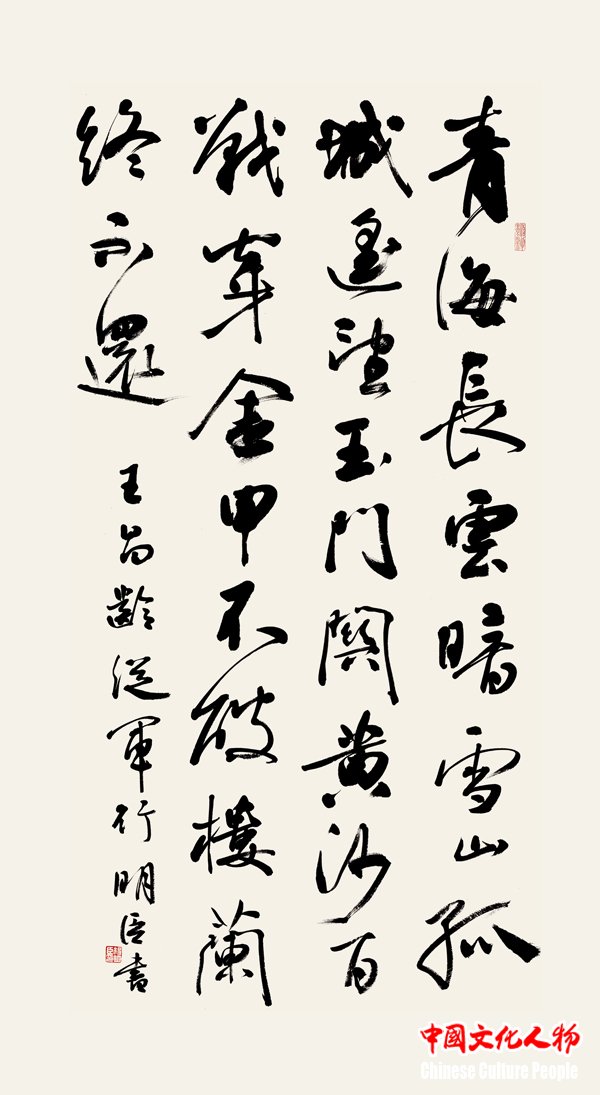 青海長雲暗雪山孤
城遥望玉門関黄沙百
戰穿金甲不破樓蘭
終不還
王昌齡從軍行明臣書
中國文化人物
Chinese Culture People